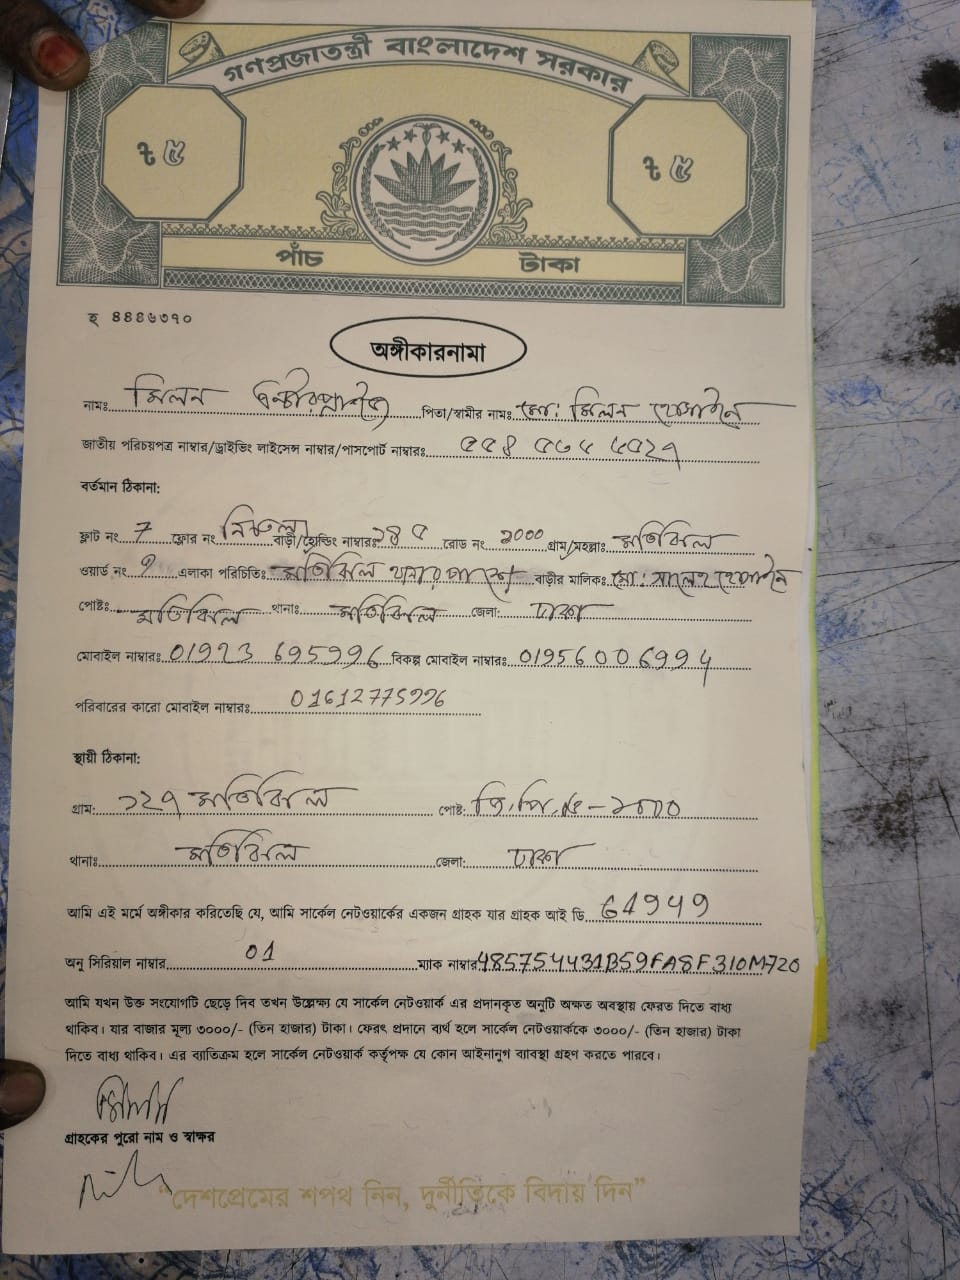 গণপ্রজাতন্ত্রী বাংলাদেশ সরকার
৳ ৫ ৳ ৫
পাঁচ টাকা
হ ৪৪৪৬৩৭০
অঙ্গীকারনামা
নামঃ মিলন পিতা/স্বামীর নামঃ মো: মিলন হোসাইন
জাতীয় পরিচয়পত্র নাম্বার/ড্রাইভিং লাইসেন্স নাম্বার/পাসপোর্ট নাম্বারঃ
বর্তমান ঠিকানা:
ফ্লাট নং 7 ফ্লোর নং নিচতলা বাড়ী/হোল্ডিং নাম্বারঃ রোড নং ১০০০ গ্রাম/মহল্লাঃ মতিঝিল
ওয়ার্ড নং ৭ এলাকা পরিচিতিঃ মতিঝিল থানার পাশে বাড়ীর মালিকঃ মো: সালেহ হোসাইন
পোষ্টঃ মতিঝিল থানাঃ মতিঝিল জেলা: ঢাকা
মোবাইল নাম্বারঃ 01923 695996 বিকল্প মোবাইল নাম্বারঃ 01956006994
পরিবারের কারো মোবাইল নাম্বারঃ 01612775996
স্থায়ী ঠিকানা:
গ্রাম: ১২৭ মতিঝিল পোষ্ট: জি.পি.ও-১০০০
থানাঃ মতিঝিল জেলা: ঢাকা
আমি এই মর্মে অঙ্গীকার করিতেছি যে, আমি সার্কেল নেটওয়ার্কের একজন গ্রাহক যার গ্রাহক আই ডি 64949
অনু সিরিয়াল নাম্বার 01 ম্যাক নাম্বার 485754431B59FA8F310M720
আমি যখন উক্ত সংযোগটি ছেড়ে দিব তখন উল্লেক্ষ্য যে সার্কেল নেটওয়ার্ক এর প্রদানকৃত অনুটি অক্ষত অবস্থায় ফেরত দিতে বাধ্য
থাকিব। যার বাজার মূল্য ৩০০০/- (তিন হাজার) টাকা। ফেরৎ প্রদানে ব্যর্থ হলে সার্কেল নেটওয়ার্ককে ৩০০০/- (তিন হাজার) টাকা
দিতে বাধ্য থাকিব। এর ব্যাতিক্রম হলে সার্কেল নেটওয়ার্ক কর্তৃপক্ষ যে কোন আইনানুগ ব্যাবস্থা গ্রহণ করতে পারবে।
মিলন
গ্রাহকের পুরো নাম ও স্বাক্ষর
“দেশপ্রেমের শপথ নিন, দুর্নীতিকে বিদায় দিন”